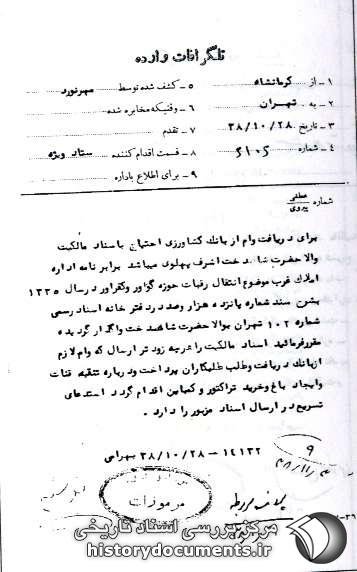 تلگرافات وارده
۱ـ از کرمانشاه
۲ـ به تهران
۳ـ تاریخ ۳۸/۱۰/۲۸
۴ـ شماره ۵۱۰۵
۵ـ کشف شده توسط مهرنورد
۶ـ وقتیکه مخابره شده
۷ـ تقدم
۸ـ قسمت اقدام کننده ستاد ویژه
۹ـ برای اطلاع باداره
شماره عطفی
پیروی
برای دریافت وام از بانک کشاورزی احتیاج باسناد مالکیت
والا حضرت شاهدخت اشرف پهلوی میباشد برابر نامه اداره
املاک غرب موضوع انتقال رقبات حوزه گواور وکفراور در سال ۱۳۳۵
بشرح سند شماره پانزده هزار وصد در دفتر خانه اسناد رسمی
شماره ۱۰۲ تهران بوالا حضرت شاهدخت واگذار گردیده
مقررفرمائید اسناد مالکیت را هرچه زودتر ارسال که وام لازم
ازبانک دریافت وطلب طلبکاران پرداخت ودرباره تنقیه قنات
وایجاد باغ وخرید تراکتور و کمباین اقدام گردد استدعای
تسریع در ارسال اسناد مزبور را دارد .
۱۴۱۳۲ – ۳۸/۱۰/۲۸ بهرامی
۹
رمزوزات
مرکز بررسی اسناد تاریخی
historydocuments.ir